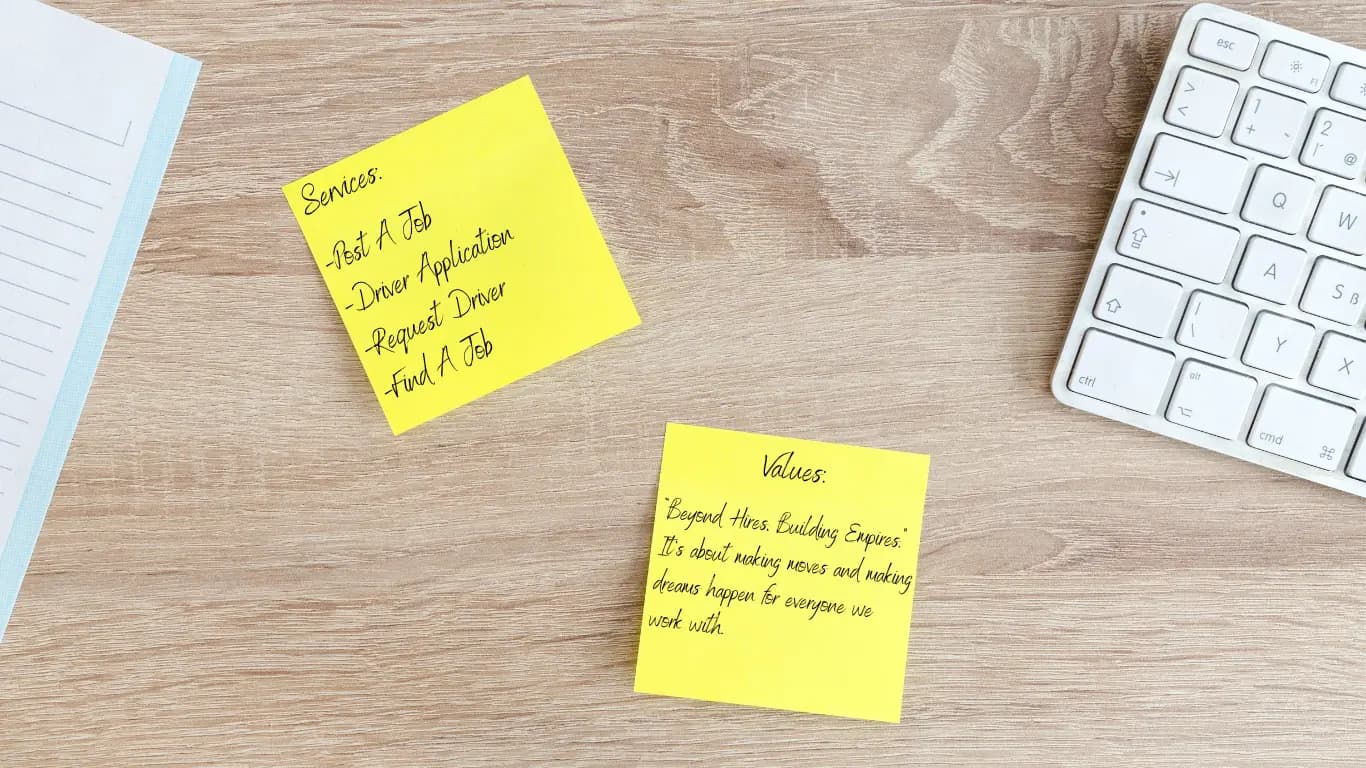 Services:
-Post A Job
-Driver Application
-Request Driver
-Find A Job
Values:
"Beyond Hires. Building Empires."
It's about making moves and making
dreams happen for everyone we
work with.
esc
F1
>
<
1
+ -
2
@
Q
W
A
S ß
Y
X
ctrl
alt
cmd